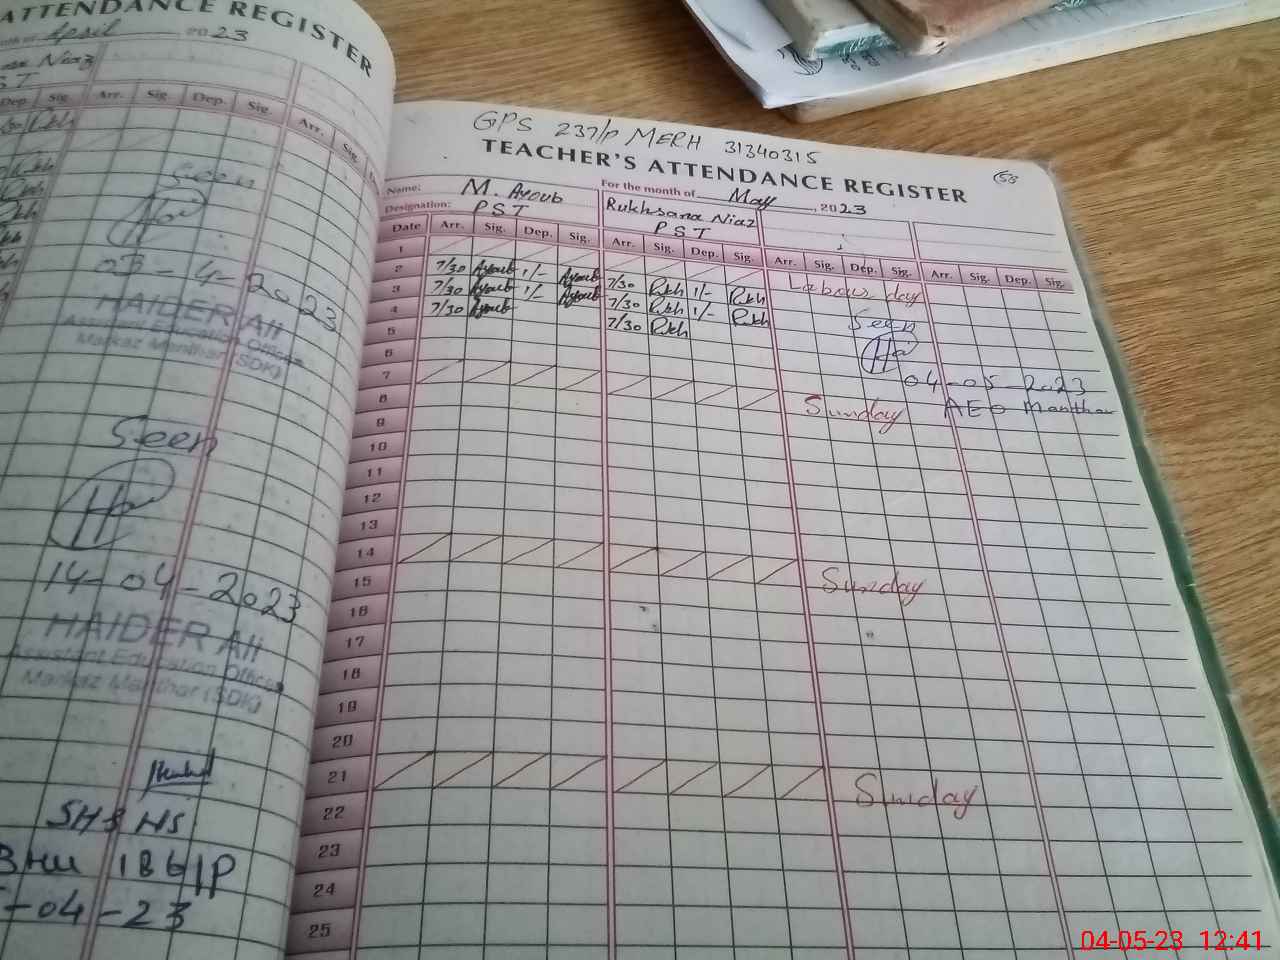 ATTENDANCE REGISTER
April 2023
Niaz
Dep. Sig. Arr. Sig. Dep. Sig. Arr. Sig.
Seen
03-4-2023
HAIDER Ali
Assistant Education Officer
Markaz Manthar (SDK)
Seen
14-04-2023
HAIDER Ali
Assistant Education Officer
Markaz Manthar (SDK)
SH&NS
BHU 186/P
-04-23
GPS 237/P MERH 31340315
TEACHER'S ATTENDANCE REGISTER
58
Name: M. Ayoub For the month of May, 2023
Designation: PST Rukhsana Niaz
PST
Date Arr. Sig. Dep. Sig. Arr. Sig. Dep. Sig. Arr. Sig. Dep. Sig. Arr. Sig. Dep. Sig.
1 Labour day
2 7/30 Ayoub 1/- Ayoub 7/30 Rukh 1/- Rukh
3 7/30 Ayoub 1/- Ayoub 7/30 Rukh 1/- Rukh
4 7/30 Ayoub 7/30 Rukh
Seen
04-05-2023
AEO Manthar
5
6
7 Sunday
8
9
10
11
12
13
14 Sunday
15
16
17
18
19
20
21 Sunday
22
23
24
25
04-05-23 12:41